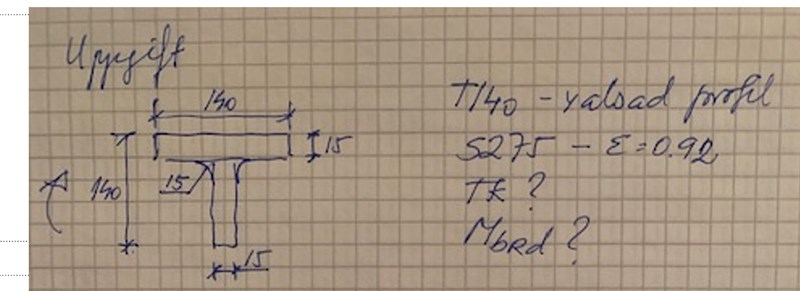 Uppgift
140
T140 - valsad profil
15
S275 - ε=0.92
140
15
TK ?
MbRd ?
15